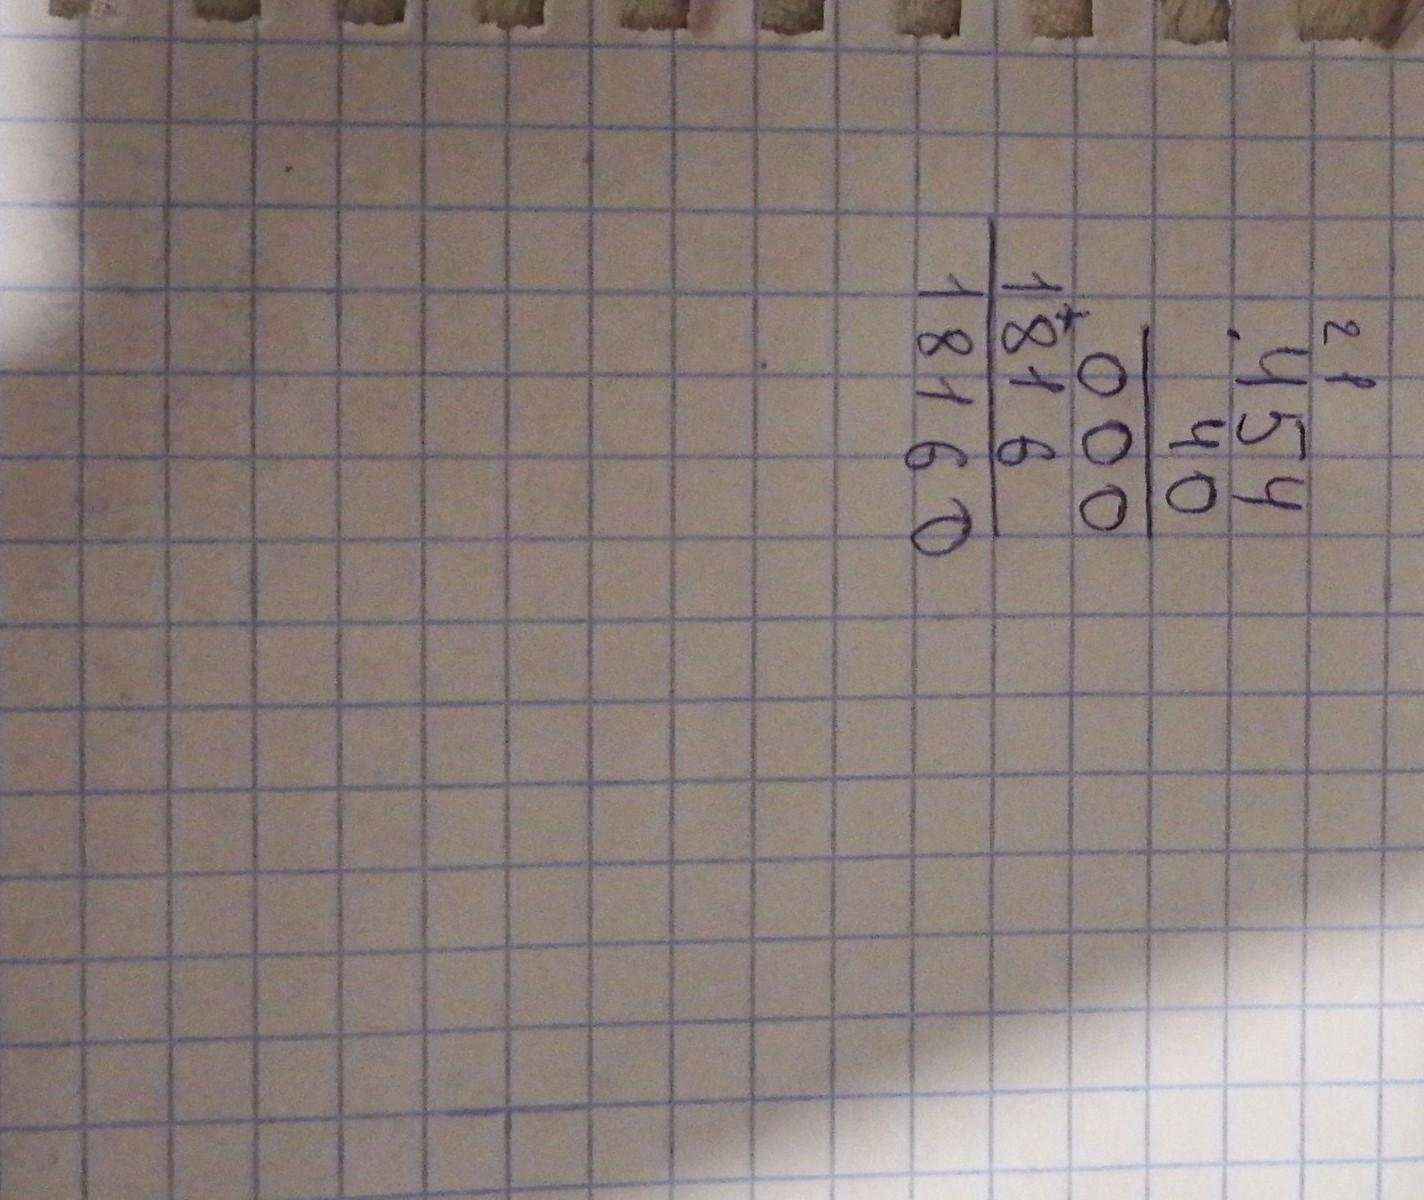 2 1
· 454
40
000
+ 1816
18160